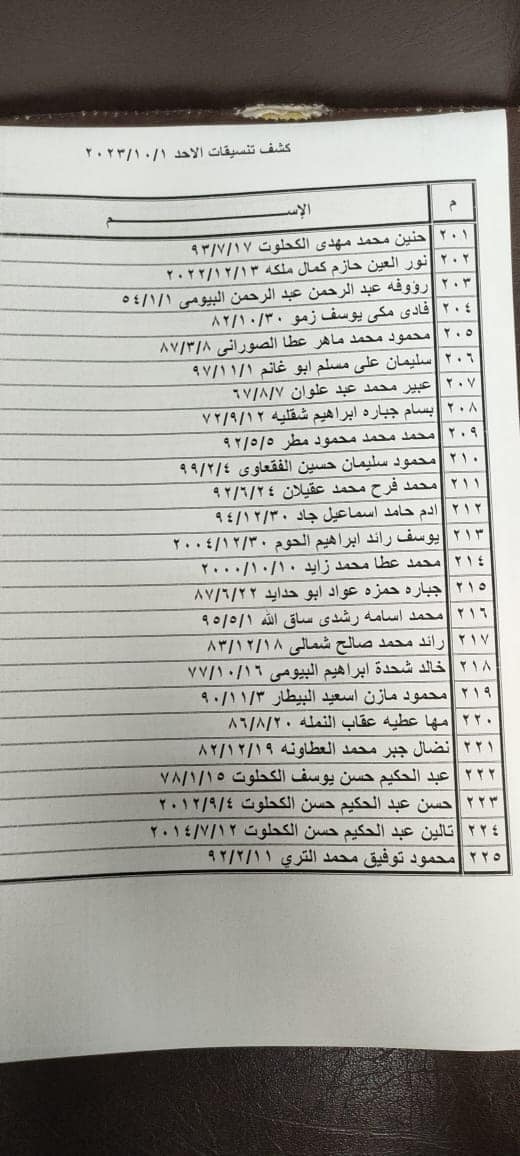 كشف تنسيقات الاحد ٢٠٢٣/١٠/١
م الإســـــــــم
٢٠١ حنين محمد مهدى الكحلوت ٩٣/٧/١٧
٢٠٢ نور العين حازم كمال ملكه ٢٠٢٢/١٢/١٣
٢٠٣ رؤوفه عبد الرحمن عبد الرحمن البيومى ٥٤/١/١
٢٠٤ فادى مكى يوسف زمو ٨٢/١٠/٣٠
٢٠٥ محمود محمد ماهر عطا الصورانى ٨٧/٣/٨
٢٠٦ سليمان على مسلم ابو غانم ٩٧/١١/١
٢٠٧ عبير محمد عبد علوان ٦٧/٨/٧
٢٠٨ بسام جباره ابراهيم شقليه ٧٢/٩/١٢
٢٠٩ محمد محمد محمود مطر ٩٢/٥/٥
٢١٠ محمود سليمان حسين الفقعاوى ٩٩/٢/٤
٢١١ محمد فرح محمد عقيلان ٩٢/٦/٢٤
٢١٢ ادم حامد اسماعيل جاد ٩٤/١٢/٣٠
٢١٣ يوسف رائد ابراهيم الحوم ٢٠٠٤/١٢/٣٠
٢١٤ محمد عطا محمد زايد ٢٠٠٠/١٠/١٠
٢١٥ جباره حمزه عواد ابو حدايد ٨٧/٦/٢٢
٢١٦ محمد اسامه رشدى ساق الله ٩٥/٥/١
٢١٧ رائد محمد صالح شمالى ٨٣/١٢/١٨
٢١٨ خالد شحدة ابراهيم البيومى ٧٧/١٠/١٦
٢١٩ محمود مازن اسعيد البيطار ٩٠/١١/٣
٢٢٠ مها عطيه عقاب النمله ٨٦/٨/٢٠
٢٢١ نضال جبر محمد العطاونه ٨٢/١٢/١٩
٢٢٢ عبد الحكيم حسن يوسف الكحلوت ٧٨/١/١٥
٢٢٣ حسن عبد الحكيم حسن الكحلوت ٢٠١٢/٩/٤
٢٢٤ تالين عبد الحكيم حسن الكحلوت ٢٠١٤/٧/١٢
٢٢٥ محمود توفيق محمد التري ٩٢/٢/١١